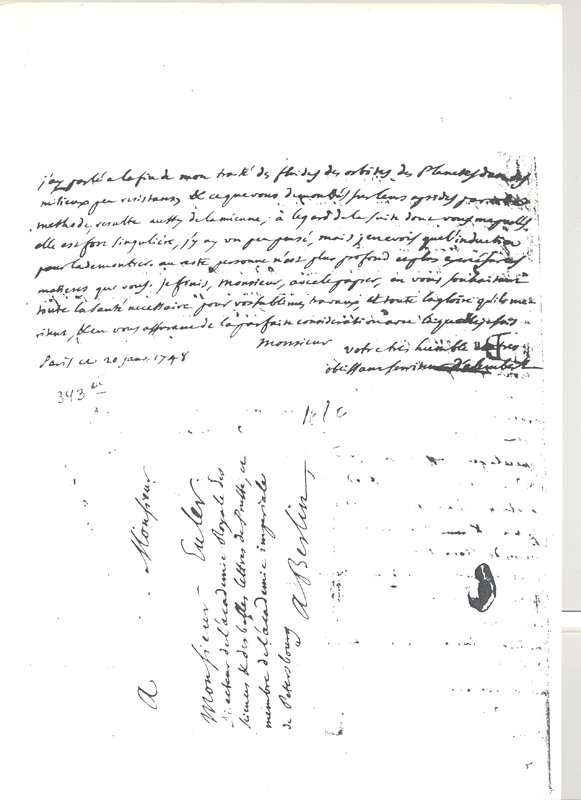 j'ay parlé a la fin de mon traité des fluides des orbites des Planetes dans des
milieux peu resistans, & ce que vous demontrés sur leurs apsides par
methode, resulte aussy de la mienne, à legard de la suite dont vous me parlés
elle est fort singuliére, j'y ay un peu pensé, mais je ne vois que l'induction
pour la demontrer. au reste personne n'est plus profond & plus
matieres que vous. Je finis, Monsieur, avec le papier, en vous souhaitant
toute la santé necessaire pour vos sublimes travaux, et toute la gloire qu'ils me-
ritent, & en vous assurant de la parfaite consideration avec laquelle je suis
Monsieur votre tres humble & tres
Paris ce 20 janv. 1748 obeissant serviteur d'Alembert
343
A
Monsieur
Monsieur Euler
directeur de l'academie Royale des
sciences & des belles lettres de Prusse, &
membre de l'academie imperiale
de Petersbourg
A Berlin